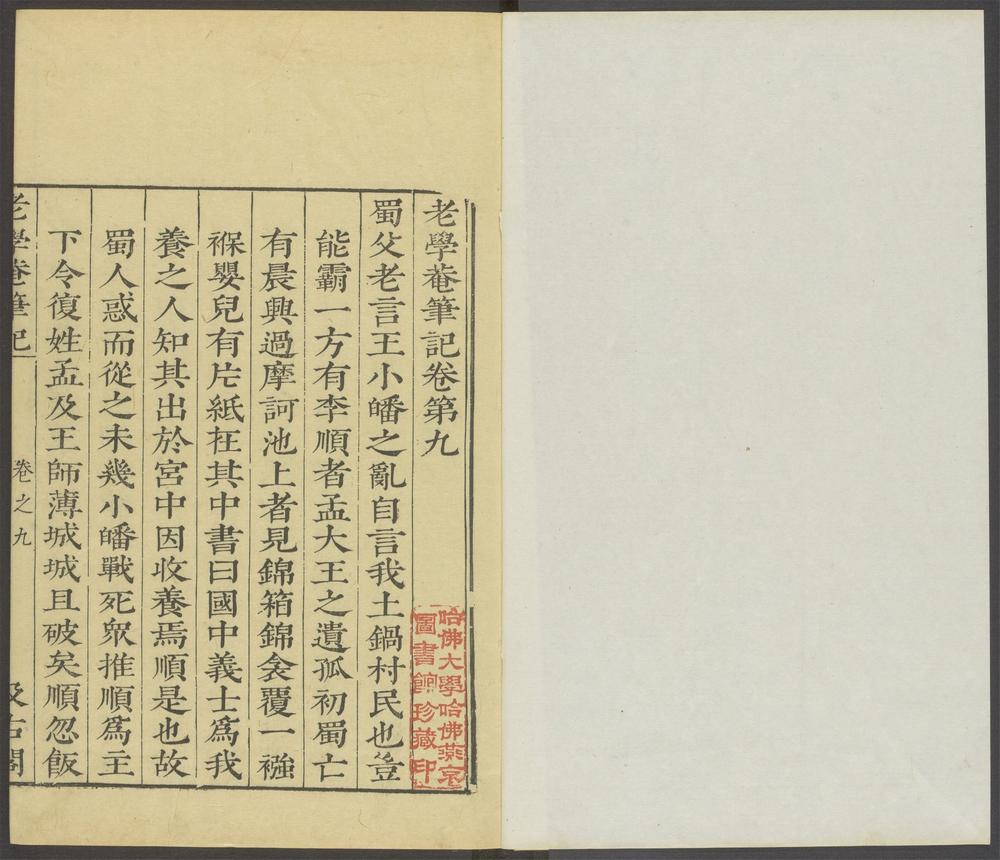 老學菴筆記卷第九
蜀父老言王小皤之亂自言我土鍋村民也豈
能霸一方有李順者孟大王之遺孤初蜀亡
有晨興過摩訶池上者見錦箱錦衾覆一襁
褓嬰兒有片紙在其中書曰國中義士爲我
養之人知其出於宮中因收養焉順是也故
蜀人惑而從之未幾小皤戰死眾推順爲主
下令復姓孟及王師薄城城且破矣順忽飯
老學菴筆記 卷之九 汲古閣
哈佛大學哈佛燕京
圖書館珍藏印